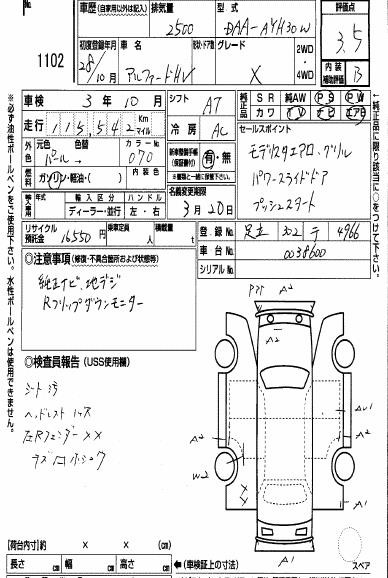 No.
1102
車歴(自家用以外は記入)
排気量 2500
型式 DAA-AYH30W
評価点 3.5
初度登録年月 28/10月
車名 アルファードHV
形状・ドア数
グレード X
2WD・4WD
内装補助評価 B
車検 3年10月
シフト AT
純正品 SR 純AW PS PW
カワ TV ナビ エアB
走行 115,542 Km マイル
冷房 AC
セールスポイント
モデリスタエアロ、グリル
パワースライドドア
プッシュスタート
外色 元色 パール→ 色替
カラーNo. 070
新車整備手帳(保証書付) 有・無
※書類と一緒に保管
燃料 ガソリン・軽油・( )
内装色
名義変更期限 3月20日
輸入車 年式 輸入区分 ハンドル
ディーラー・並行 左・右
リサイクル預託金 16550円
乗車定員 人
積載量 t
登録No. 足立 302 テ 4966
車台No. 0038600
シリアルNo.
◎注意事項(修復・不具合箇所および状態等)
純正ナビ、地デジ
Rフリップダウンモニター
PPキズ A2
A2
A2
AU1
A2
W2
A1
A1
◎検査員報告(USS使用欄)
シート汚
ヘッドレスト
左Rフェンダー××
[荷台内寸]約 × × (cm)
長さ cm 幅 cm 高さ cm
◀(車検証上の寸法)
スペア
※必ず油性ボールペンをご使用下さい。水性ボールペンは使用できません。
*純正品に限り該当に○をつけて下さい。